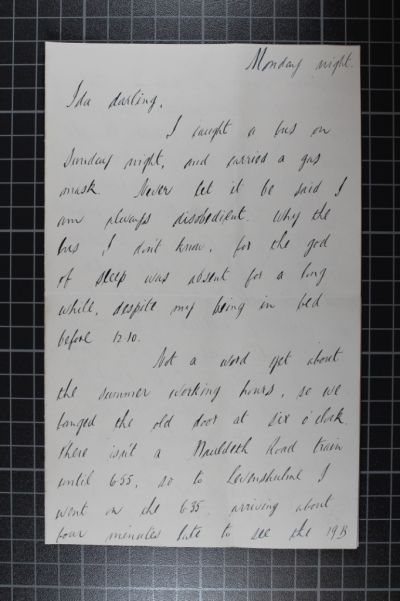 Monday night.
Ida darling,
I caught a bus on
Sunday night, and carried a gas
mask. Never let it be said I
am always disobedient. Why the
bus, I don't know, for the god
of sleep was absent for a long
while, despite my being in bed
before 12.10.
Not a word yet about
the summer working hours, so we
banged the old door at six o'clock.
There isn't a Mauldeth Road train
until 6.55, so to Levenshulme I
went on the 6.35, arriving about
four minutes late to see the 19B